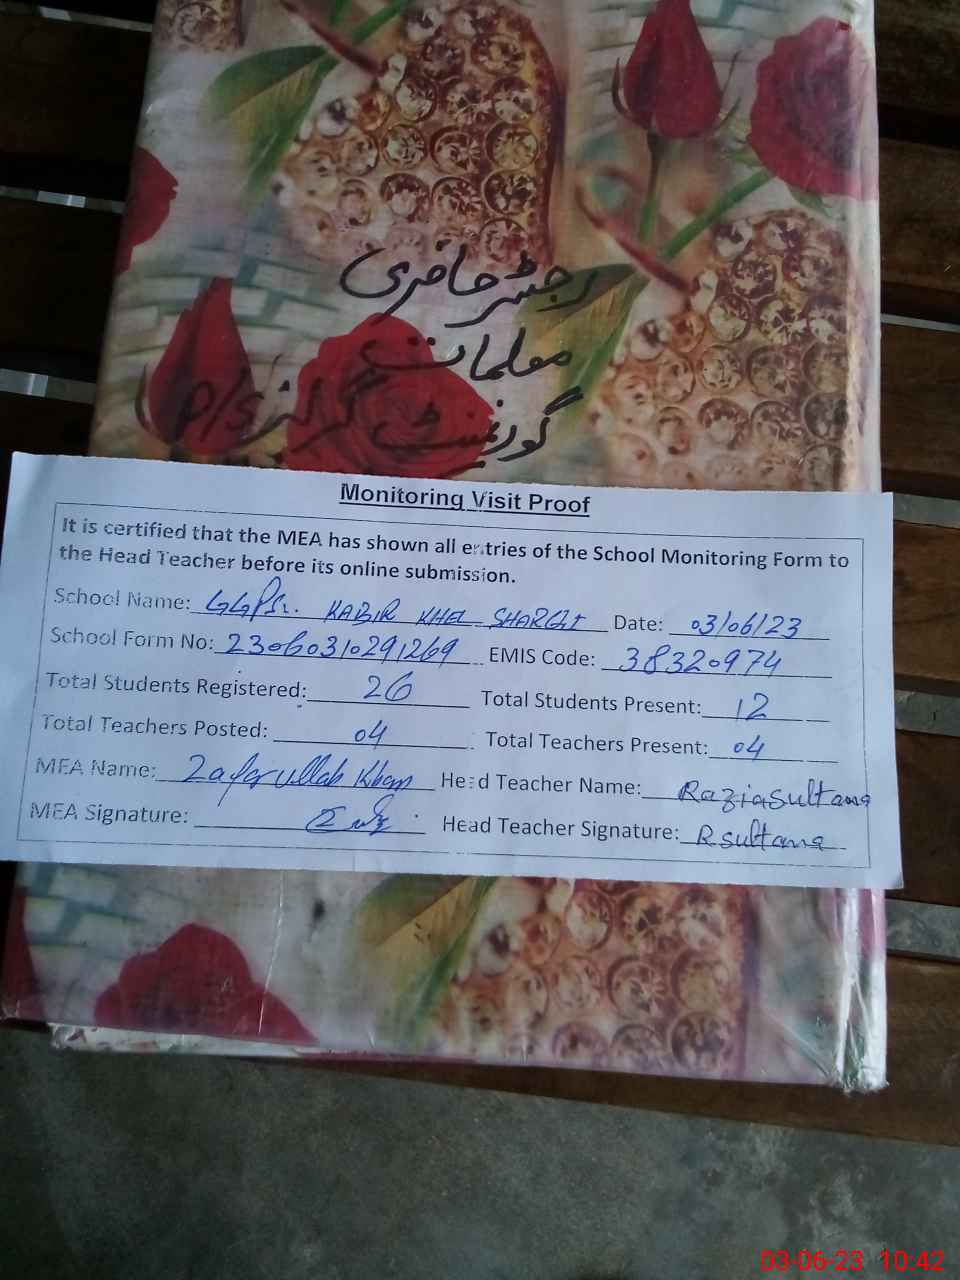 رجسٹر حاضری
معلمات
گورنمنٹ گرلز P/S
Monitoring Visit Proof
It is certified that the MEA has shown all entries of the School Monitoring Form to
the Head Teacher before its online submission.
School Name: GGPS. KABIR KHEL SHARGI Date: 03/06/23
School Form No: 23060310291269 EMIS Code: 38320974
Total Students Registered: 26 Total Students Present: 12
Total Teachers Posted: 04 Total Teachers Present: 04
MEA Name: Zafarullah Khan Head Teacher Name: Razia Sultana
MEA Signature: Head Teacher Signature: R sultana
03-06-23 10:42